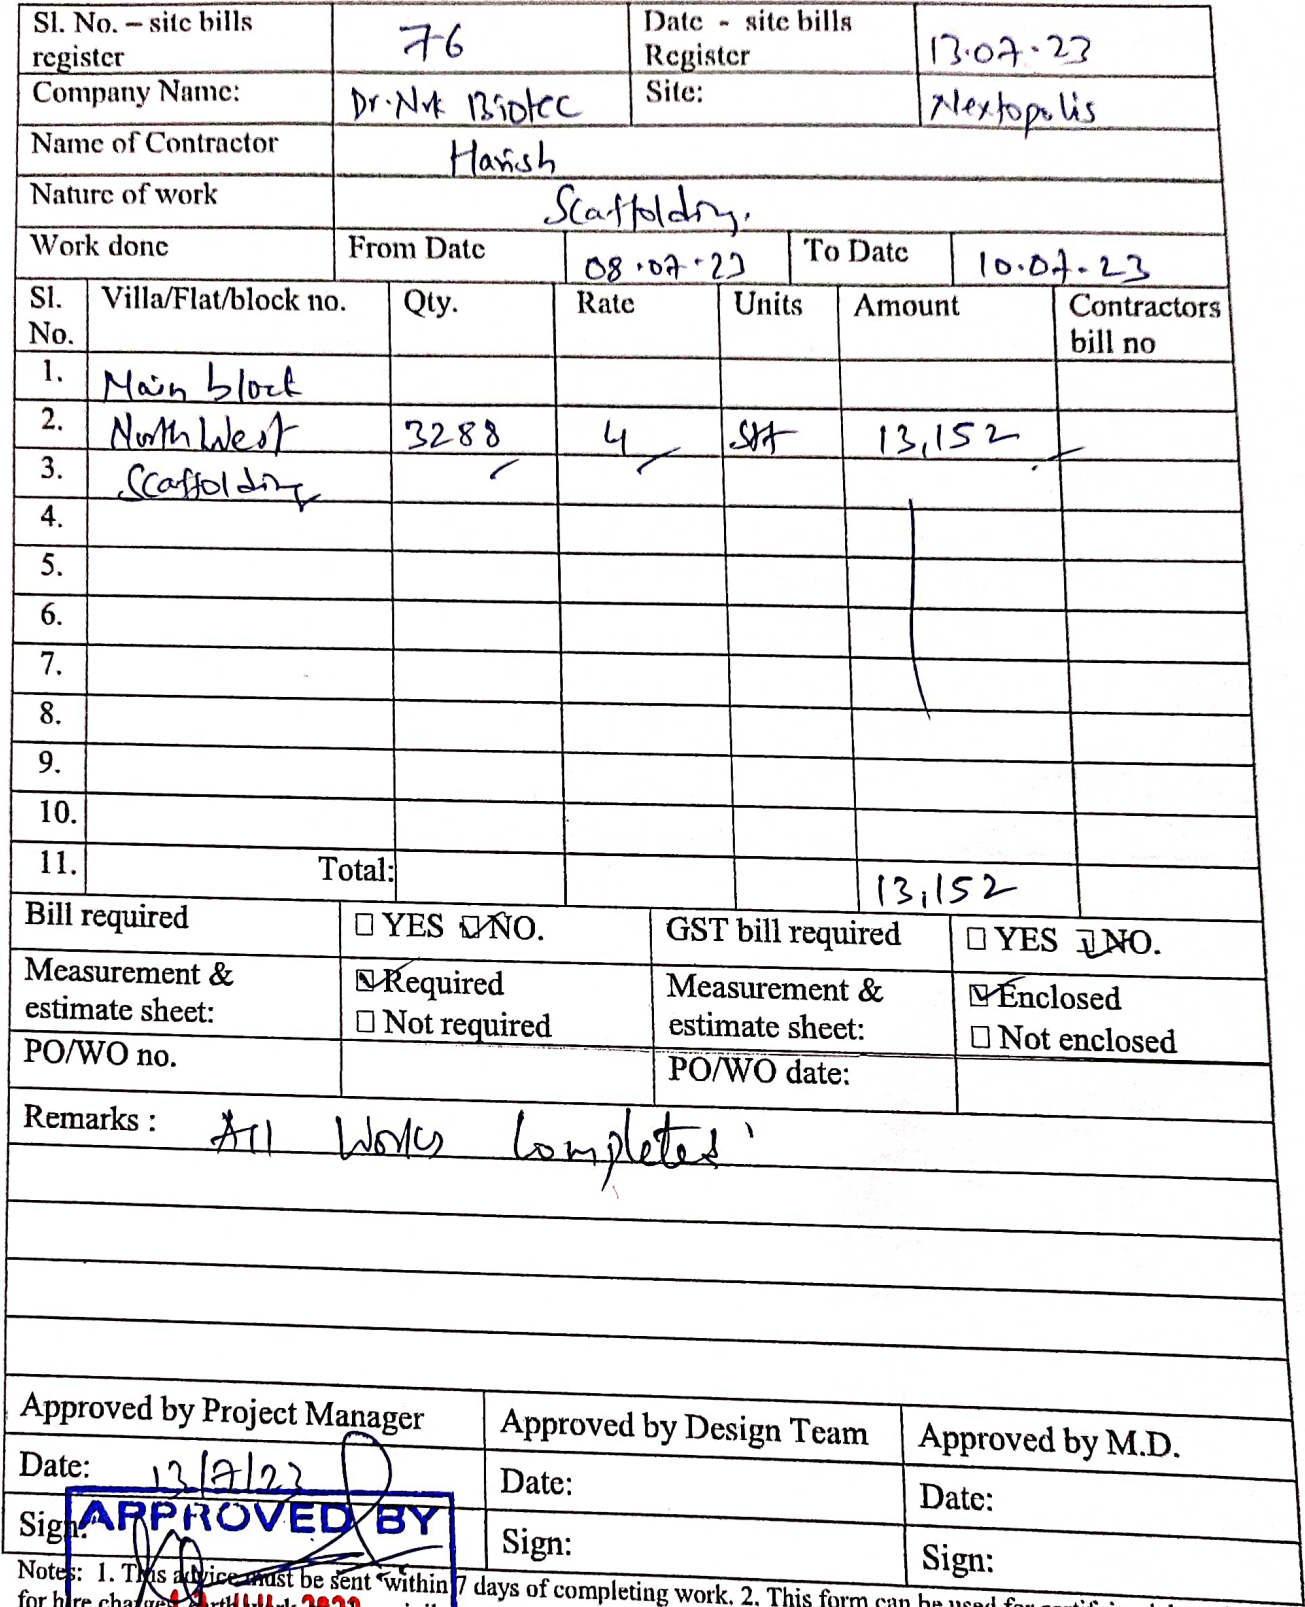 Sl. No. – site bills register 76 Date - site bills Register 13.07.23
Company Name: Dr. Nrk Biotec Site: Nextopolis
Name of Contractor Harish
Nature of work Scaffolding.
Work done From Date 08.07.23 To Date 10.07.23
Sl. No. Villa/Flat/block no. Qty. Rate Units Amount Contractors bill no
1. Main block
2. North West 3288 4 Sft 13,152
3. Scaffolding
4.
5.
6.
7.
8.
9.
10.
11. Total: 13,152
Bill required ☐ YES ☑ NO. GST bill required ☐ YES ☑ NO.
Measurement & estimate sheet: ☑ Required ☐ Not required Measurement & estimate sheet: ☑ Enclosed ☐ Not enclosed
PO/WO no. PO/WO date:
Remarks : All Works Completed
Approved by Project Manager Approved by Design Team Approved by M.D.
Date: 13/7/23 Date: Date:
Sign: Sign: Sign:
APPROVED BY
Notes: 1. This advice must be sent within 7 days of completing work. 2. This form can be used for
for hire charges